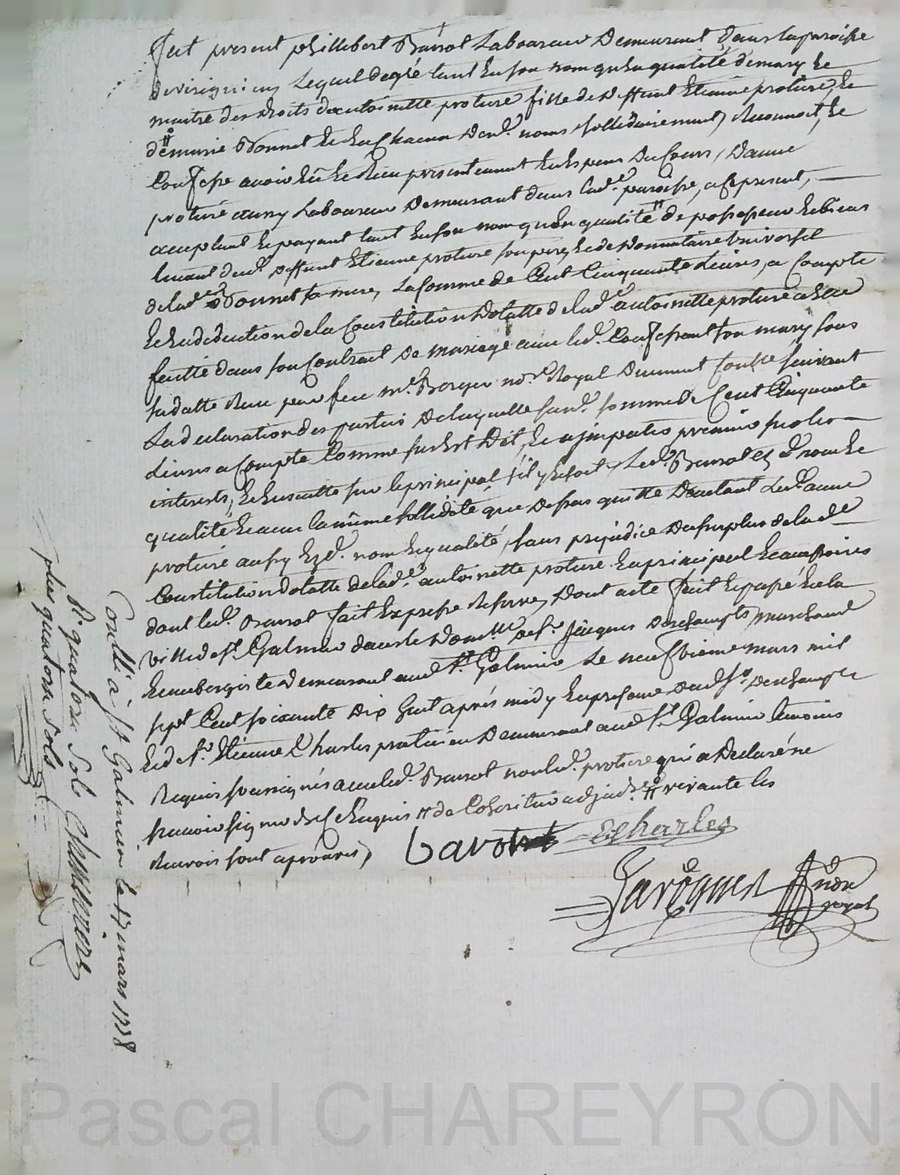 fut present phillibert Barsot Laboureur Demeurant dans la paroisse
de virigni en Lequel de gré tant En son nom qu'En qualité de mary Et
maitre des droits d'antoinette proture fille de Deffunt Etienne proture, Et
de marie Donnet Et En Chacun D'eux noms sollidairement, Reconnoit, Et
Confesse avoir Eu Et Reçu presentement En Espesses Du Cours, D'anne
proturé aussy Laboureur Demeurant dans lade. paroisse, a Ce present,
acceptant Et payant tant En son nom qu'En qualité de possesseur Les biens
dud. deffunt Etienne proturé son pere, Et de Donnataire Universel
de lade. Donnet sa mere, La somme de Cent Cinquante Livres, a Compte
Et En deduction de la Constitution Dotalle de lade. antoinette proture a Elle
faitte dans son Contrat De mariage avec led. Confessant son mary sous
sa datte Reçu par feu me. Berger nore. Royal Duement Controllé suivant
La declaration des parties De laquelle susd. somme de Cent Cinquante
Livres a Compte Comme sus Est Dit, Et a imputer premier sur les
interests, Et Ensuitte sur le principal s'il y Echoit, Led. Barsot
qualité Et avec la même sollidité que Dessus quitte D'autant Led. anne
proturé aussy Ezd. nom Et qualité, sans prejudice Du surplus de lade.
Constitution dotalle de lade. antoinette proture En principal Et accessoires
dont led. Barsot fait Expresse Reserve, Dont acte fait Et passé En la
ville de st. Galmier dans le Domicille De sr. Jacques Deschamps marchand
Et aubergiste demeurant aud. st. Galmier Le neufvieme mars mil
sept Cent soixante Dix huit après midy En presence Dud. sr. Deschamps
Et de sr. Etienne Charles praticien Demeurant aud. st. Galmier temoins
Requis soussignés avec led. Barsot non led. proture qui a Declaré ne
scavoir signer de Ce Enquis
Renvois sont aprouvés,
Barsot E Charles
Nore
royal
Conllé a st. Galmier le mars 1778
Rt. quatorze sols
plus quatorze sols
Pascal CHAREYRON